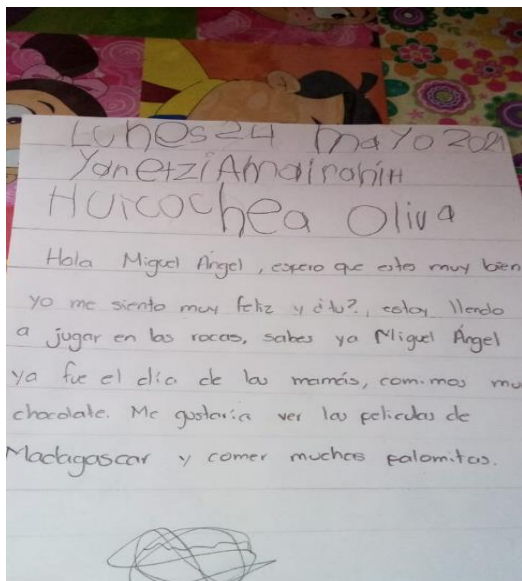 Lunes 24 mayo 2021
Yanetzi Amairanih
Huicochea Oliva
Hola Miguel Ángel, espero que estes muy bien
yo me siento muy feliz y ¿tu?, estoy llendo
a jugar en las rocas, sabes ya Miguel Ángel
ya fue el día de las mamás, comimos mu
chocolate. Me gustaría ver las peliculas de
Madagascar y comer muchas palomitas.